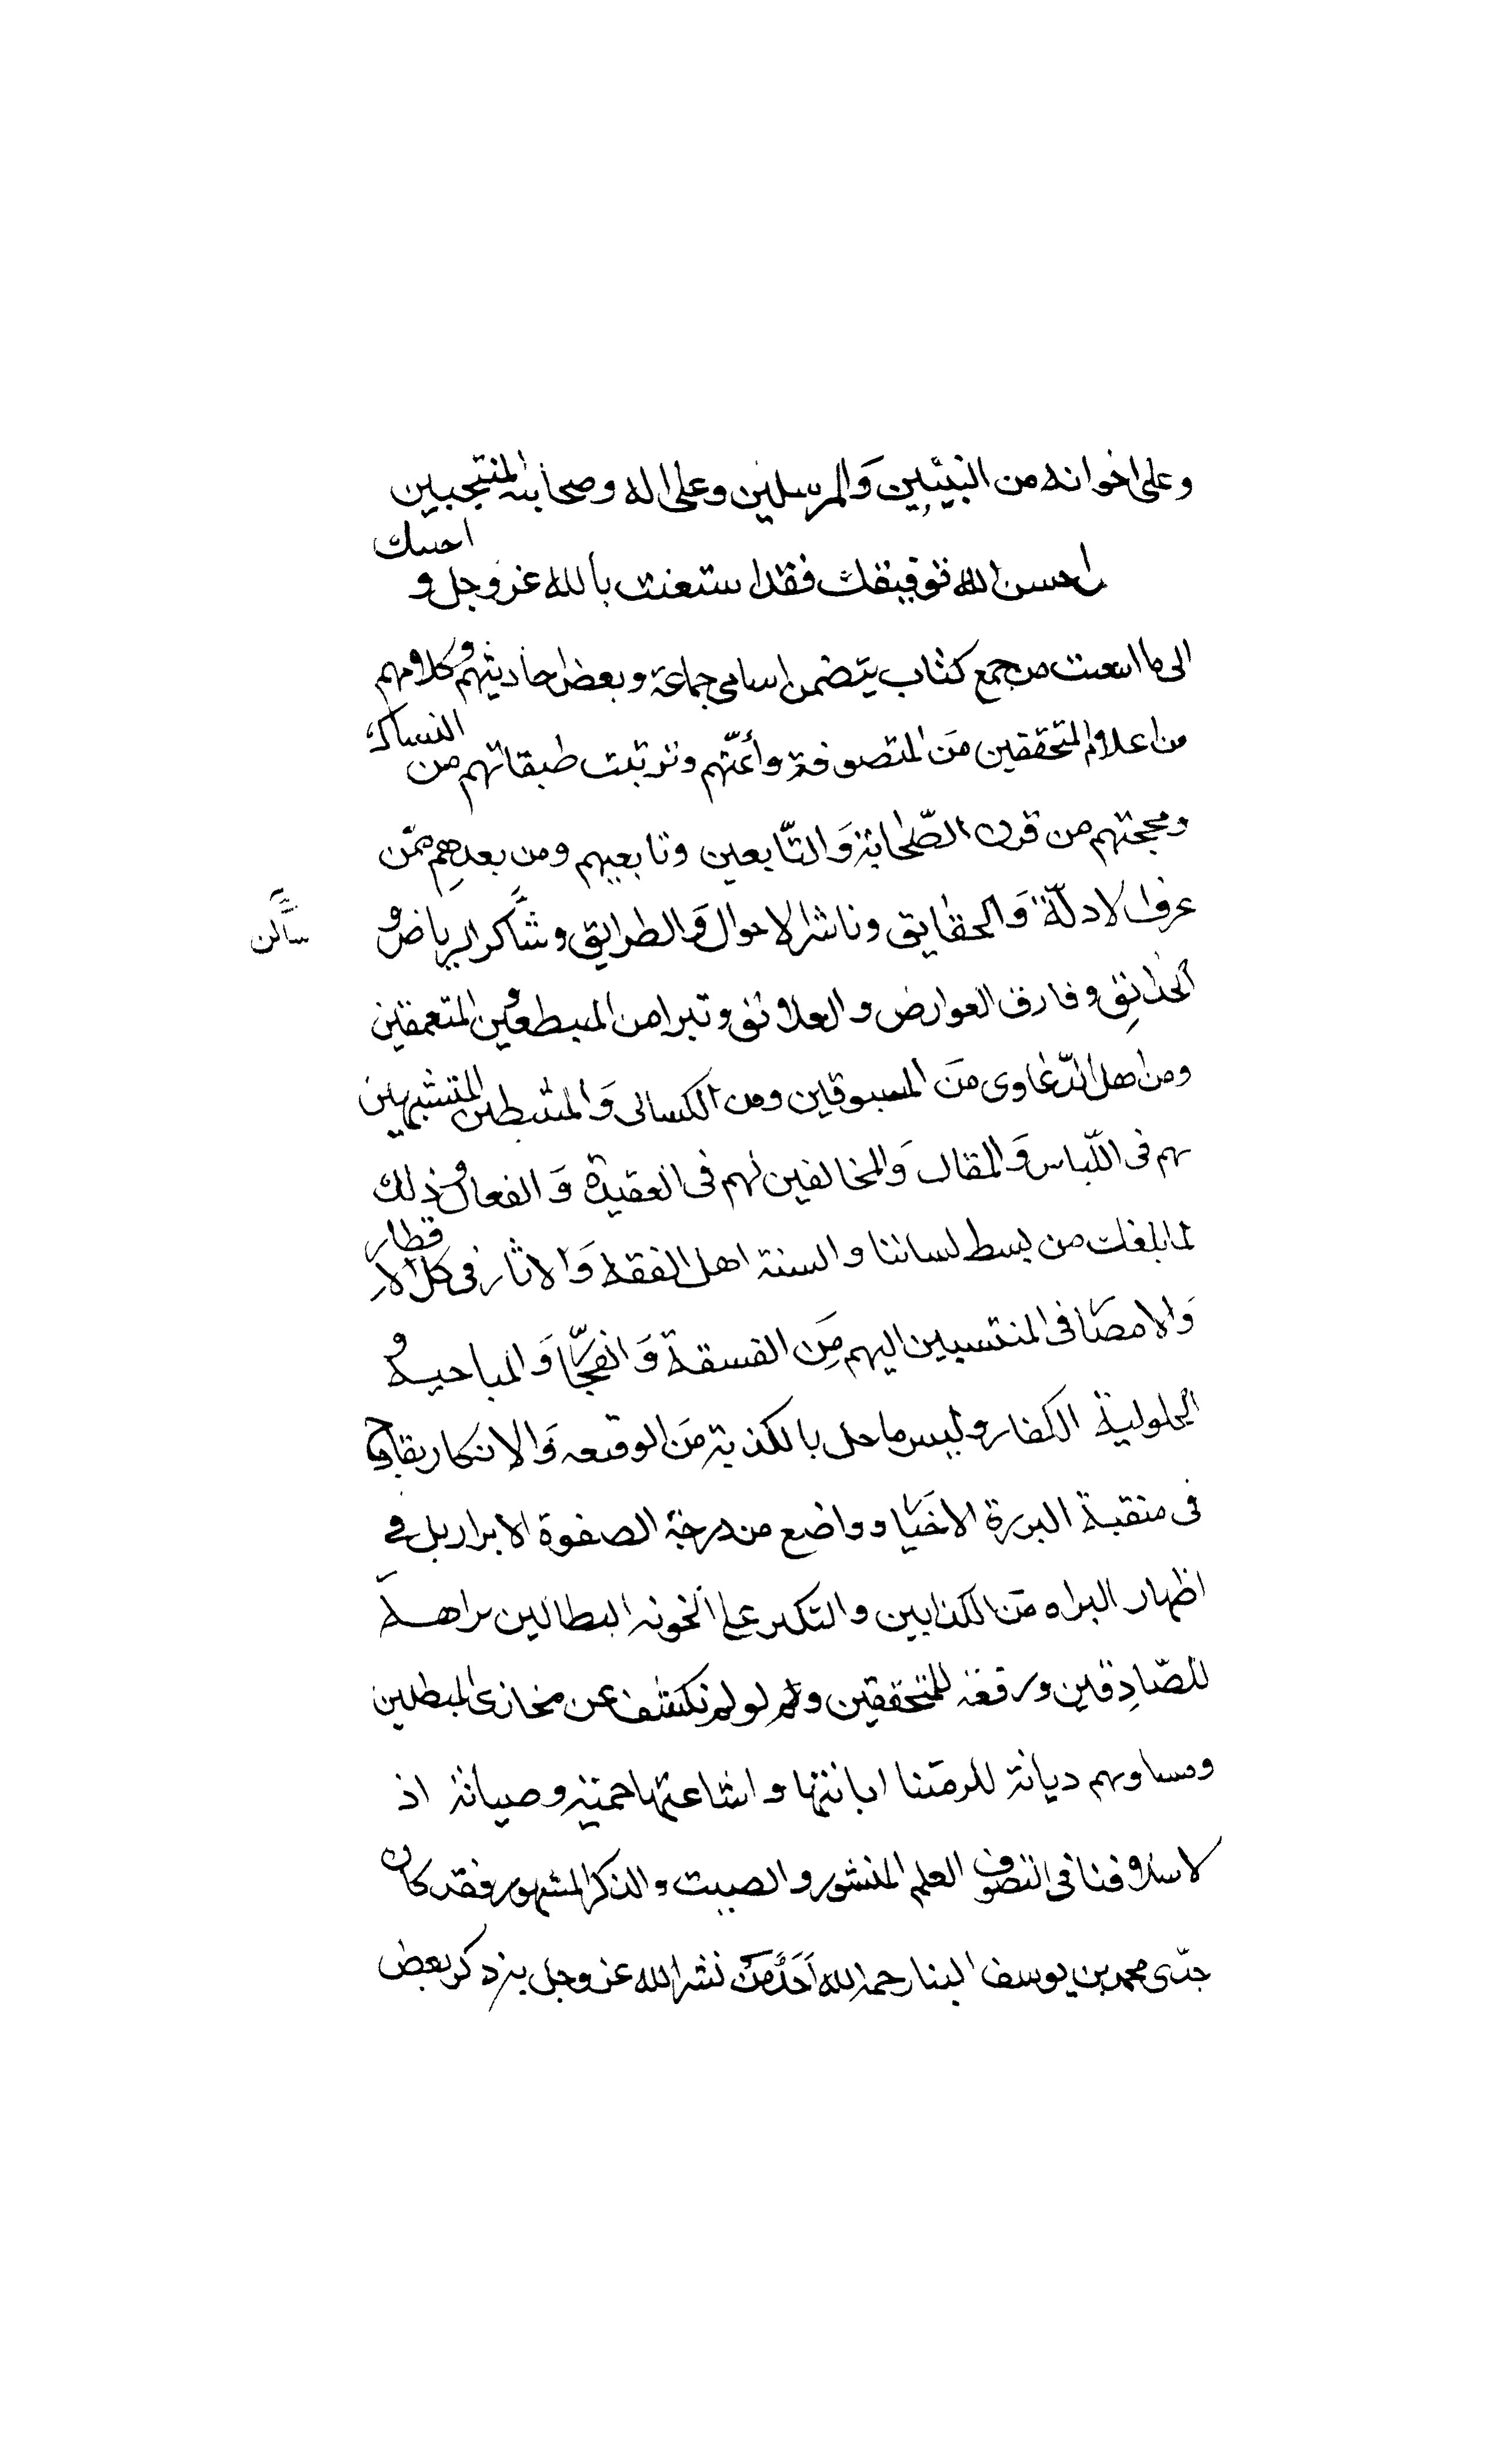 وعلى اخوانه من النبيين والمرسلين وعلى اله وصحابته المنتجبين
احسن الله توفيقك فقد استعنت بالله عز وجل و احبتك
الى ما اسعت من جمع كتاب يتضمن اسامى جماعة وبعض احاديثهم وكلامهم
من اعلام المتحققين من المتصوفة وأئمّتهم وترتيب طبقاتهم من النساك
ومحجتهم من قرن الصّحابة والتّابعين وتابعيهم ومن بعدهم ممّن
عرف الادلّة والحقايق وناشر الاحوال والطرايق وشاكر الرياض و
ساكن
الحدائق وفارق العوارض والعلائق وتبرا من المبطعين والمتعمقين
ومن اهل الدّعاوى من المسبوقين ومن الكسالى والمثبطين المتشبهين
بهم فى اللّباس والمقال والمخالفين لهم فى العقيدة والفعال وذلك
لما بلغك من بسط لساننا والسنة اهل الفقه والاثار فى كل الاقطار
والامصار فى المنتسبين اليهم من الفسقة والفجّار والمباحية و
الحلولية الكفار وليس ما حل بالكذبة من الوقيعة والانكار بقادح
فى منقبة البررة الاخيار وواضع من درجة الصفوة الابرار بل فى
اظهار البراه من الكذابين والنكير على الخونه البطالين نزاهة
للصّادقين ورفعة للمتحققين ولو لم نكشف عن مخازى المبطلين
ومساويهم ديانة للزمتنا ابانتها واشاعتها حمية وصيانة اذ
لاسلافنا فى التصوف العلم المنشور والصيت والذكر المشهور فقد كان
جدّى محمد بن يوسف البنا رحمه الله احد من نشر الله عز وجل به ذكر بعض